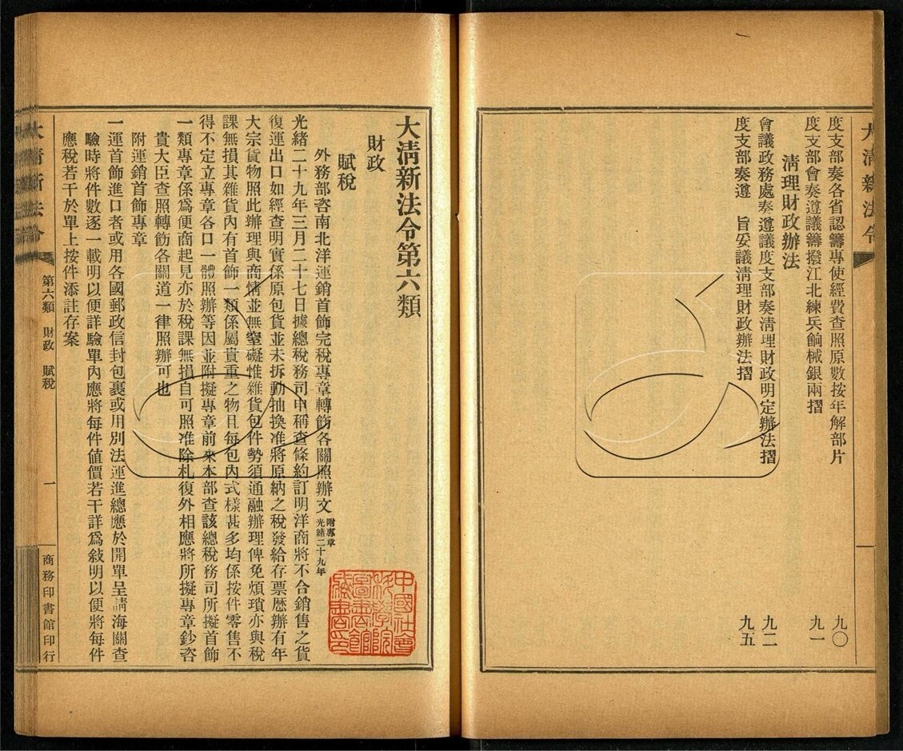 大清新法令
度支部奏各省認籌專使經費查照原數按年解部片 九〇
度支部會奏遵議籌撥江北練兵餉械銀兩摺 九一
清理財政辦法
會議政務處奏遵議度支部奏清理財政明定辦法摺 九二
度支部奏遵 旨妥議清理財政辦法摺 九五
大清新法令第六類
財政
賦稅
外務部咨南北洋運銷首飾完稅專章轉飭各關照辦文 附專章 光緒二十九年
光緒二十九年三月二十七日據總稅務司申稱查條約訂明洋商將不合銷售之貨
復運出口如經查明實係原包貨並未拆動抽換准將原納之稅發給存票歷辦有年
大宗貨物照此辦理與商情並無窒礙惟雜貨包件勢須通融辦理俾免煩瑣亦與稅
課無損其雜貨內有首飾一類係屬貴重之物且每包內式樣甚多均係按件零售不
得不定立專章各口一體照辦等因並附擬專章前來本部查該總稅務司所擬首飾
一類專章係爲便商起見亦於稅課無損自可照准除札復外相應將所擬專章鈔咨
貴大臣查照轉飭各關道一律照辦可也
附運銷首飾專章
一運首飾進口者或用各國郵政信封包裹或用別法運進總應於開單呈請海關查
驗時將件數逐一載明以便詳驗單內應將每件値價若干詳爲敍明以便將每件
應稅若干於單上按件添註存案
大清新法令 第六類 財政 賦稅 一 商務印書館印行
中國社會
科學院
圖書館
藏書印